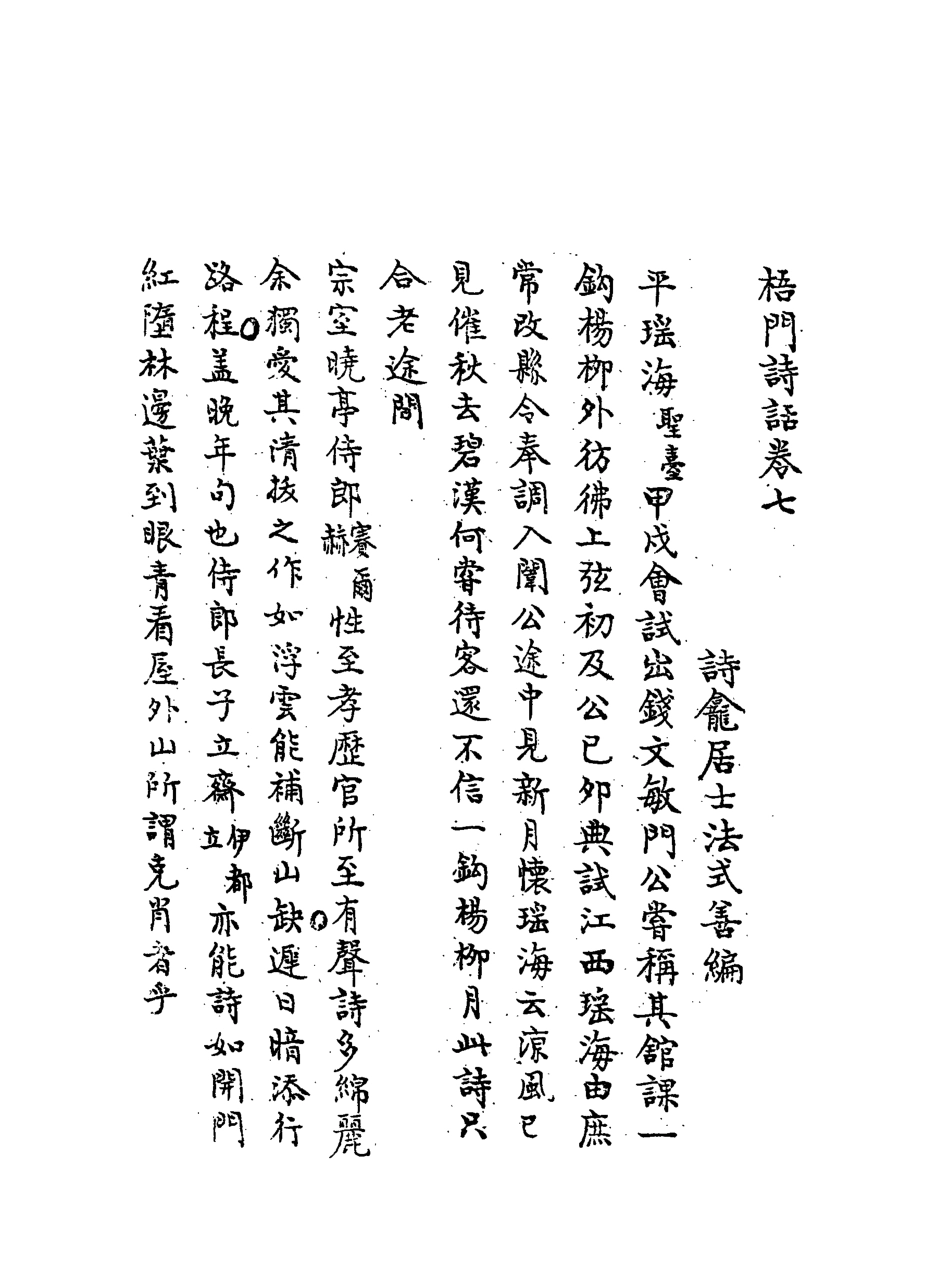 梧門詩話卷七
詩龕居士法式善編
平瑶海聖臺甲戍會試出錢文敏門公嘗稱其舘課一
鈎楊柳外彷彿上弦初及公已夘典試江西瑶海由庶
常改縣令奉調入闈公途中見新月懷瑶海云凉風已
見催秋去碧漢何嘗待客還不信一鈎楊柳月此詩只
合老途間
宗室曉亭侍郎賽爾赫性至孝歷官所至有聲詩多綿麗
余獨愛其清拔之作如浮雲能補斷山缺遲日暗添行
路程盖晚年句也侍郎長子立齋伊都立亦能詩如開門
紅墮林邊葉到眼青看屋外山所謂克肖者乎